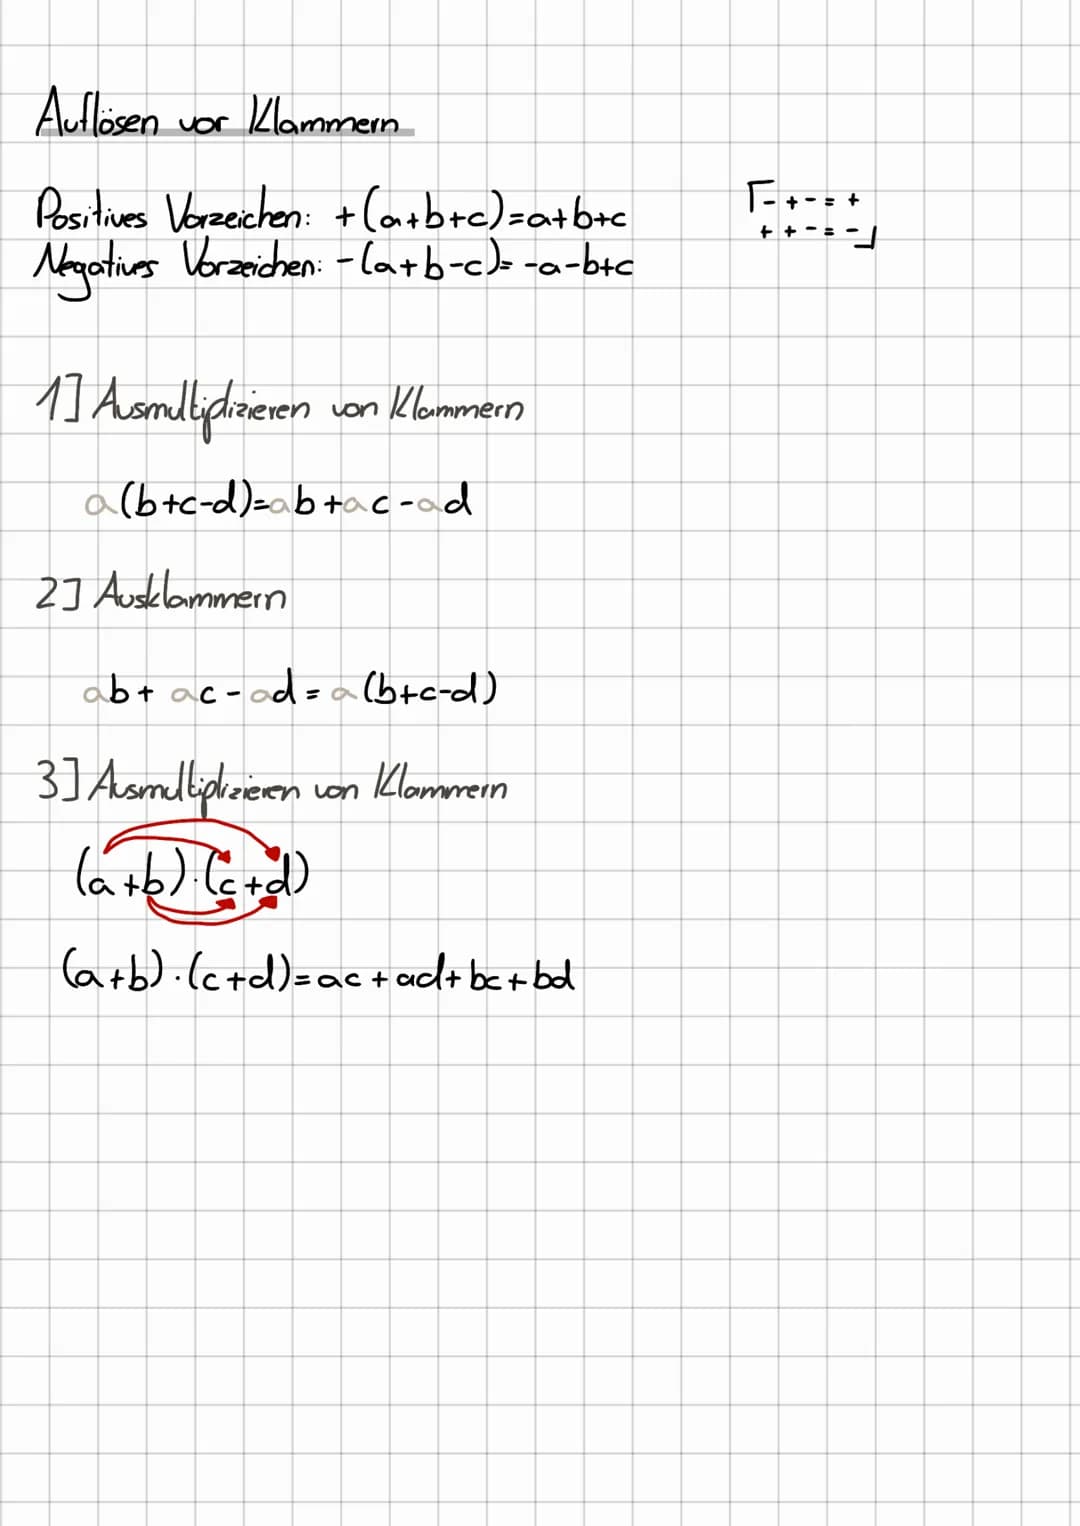 Auflösen vor Klammern
Positives Vorzeichen: +(a+b+c)=a+b+c
Negatives Vorzeichen: -(a+b-c)= -a-b+c
⌈- + - = +
+ + - = -⌋
1] Ausmultiplizieren von Klammern
a(b+c-d)=ab+ac-ad
2] Ausklammern
ab+ ac- ad = a(b+c-d)
3] Ausmultiplizieren von Klammern
(a+b)·(c+d)
(a+b)·(c+d)=ac+ad+bc+bd